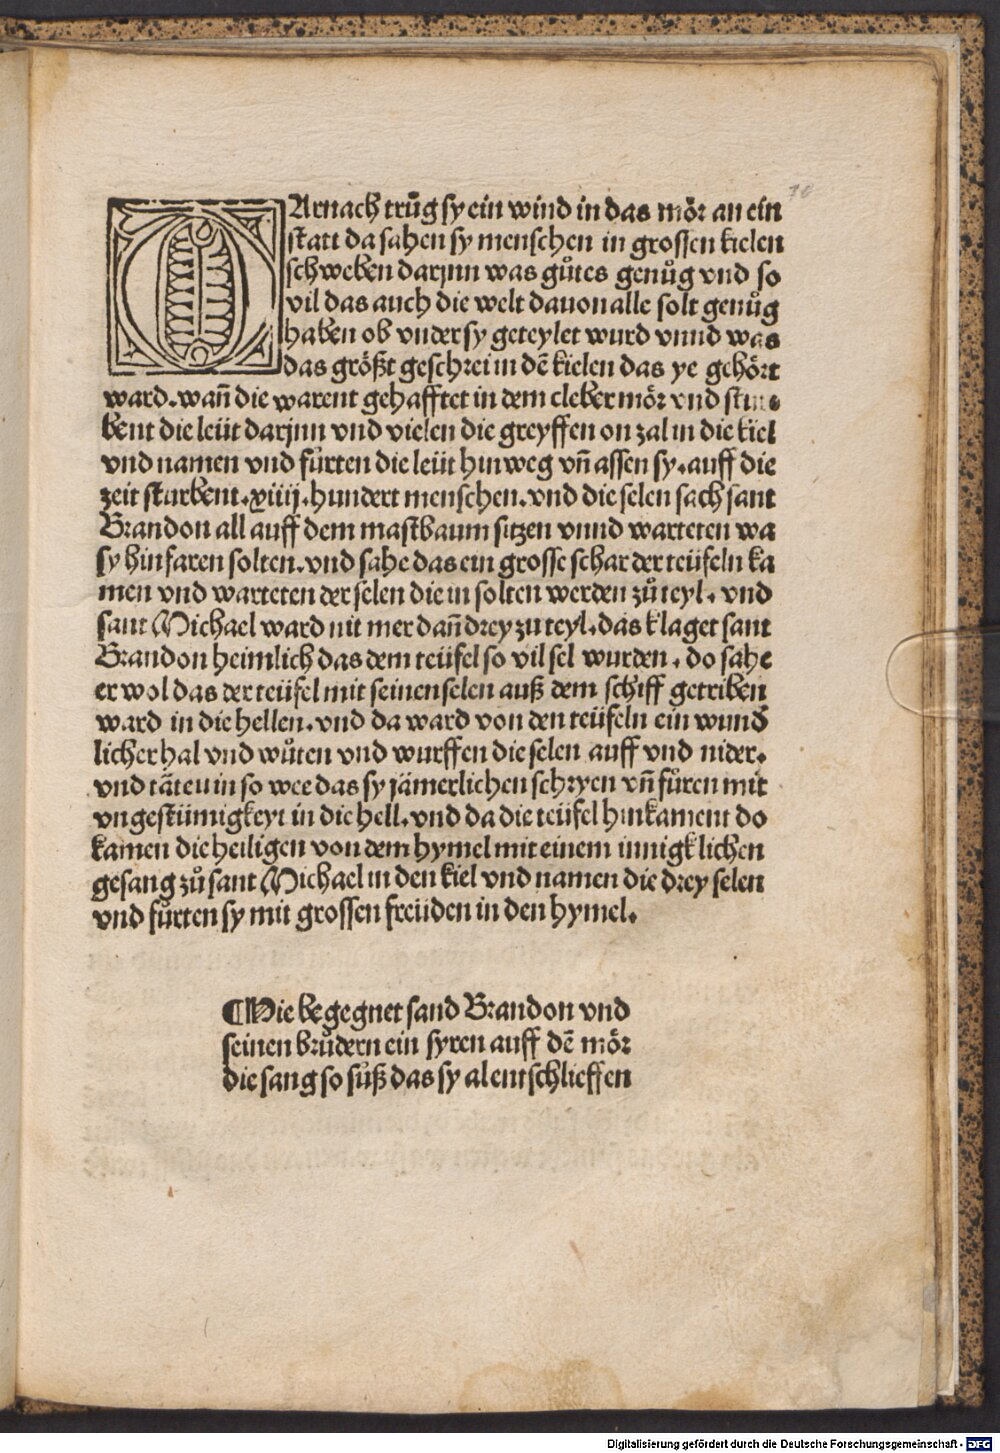 DArnach trůg sy ein wind in das mör an ein
statt da sahen sy menschen in grossen kielen
schweben darjnn was gůtes genůg vnd so
vil das auch die welt dauon alle solt genůg
haben ob vnder sy geteylet wurd vnnd was
das größt geschrei in dē kielen das ye gehört
ward. wañ die warent gehafftet in dem cleber mör vnd stur
bent die leüt darjnn vnd vielen die greyffen on zal in die kiel
vnd namen vnd fůrten die leüt hinweg vñ assen sy. auff die
zeit sturbent. xiiij. hundert menschen. vnd die selen sach sant
Brandon all auff dem mastbaum sitzen vnnd warteten wa
sy hin faren solten. vnd sahe das ein grosse schar der teüfeln ka
men vnd warteten der selen die in solten werden zů teyl. vnd
sant Michael ward nit mer dañ drey zu teyl. das klaget sant
Brandon heimlich das dem teüfel so vil sel wurden. do sahe
er wol das der teüfel mit seinen selen auß dem schiff getriben
ward in die hellen. vnd da ward von den teüfeln ein wund
licher hal vnd wůten vnd wurffen die selen auff vnd nider.
vnd täten in so wee das sy jämerlichen schryen vñ fůren mit
vngestümigkeyt in die hell. vnd da die teüfel hinkament do
kamen die heiligen von dem hymel mit einem innigklichen
gesang zů sant Michael in den kiel vnd namen die drey selen
vnd fůrten sy mit grossen freüden in den hymel.
¶Wie begegnet sand Brandon vnd
seinen brůdern ein syren auff dē mör
die sang so sůß das sy al entschlieffen
Digitalisierung gefördert durch die Deutsche Forschungsgemeinschaft - DFG